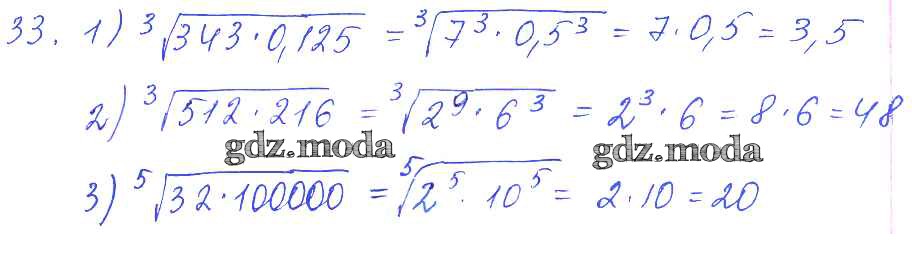 33. 1) ∛(343·0,125) = ∛(7³·0,5³) = 7·0,5 = 3,5
2) ∛(512·216) = ∛(2⁹·6³) = 2³·6 = 8·6 = 48
gdz.moda gdz.moda
3) ⁵√(32·100000) = ⁵√(2⁵·10⁵) = 2·10 = 20